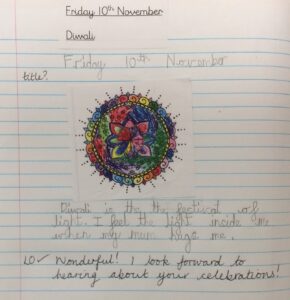 Friday 10th November
Diwali
Friday 10th November
title?
Diwali is the the festival of
light. I feel the light inside me
when my mum hugs me.
LO✓ Wonderful! I look forward to
hearing about your celebrations!